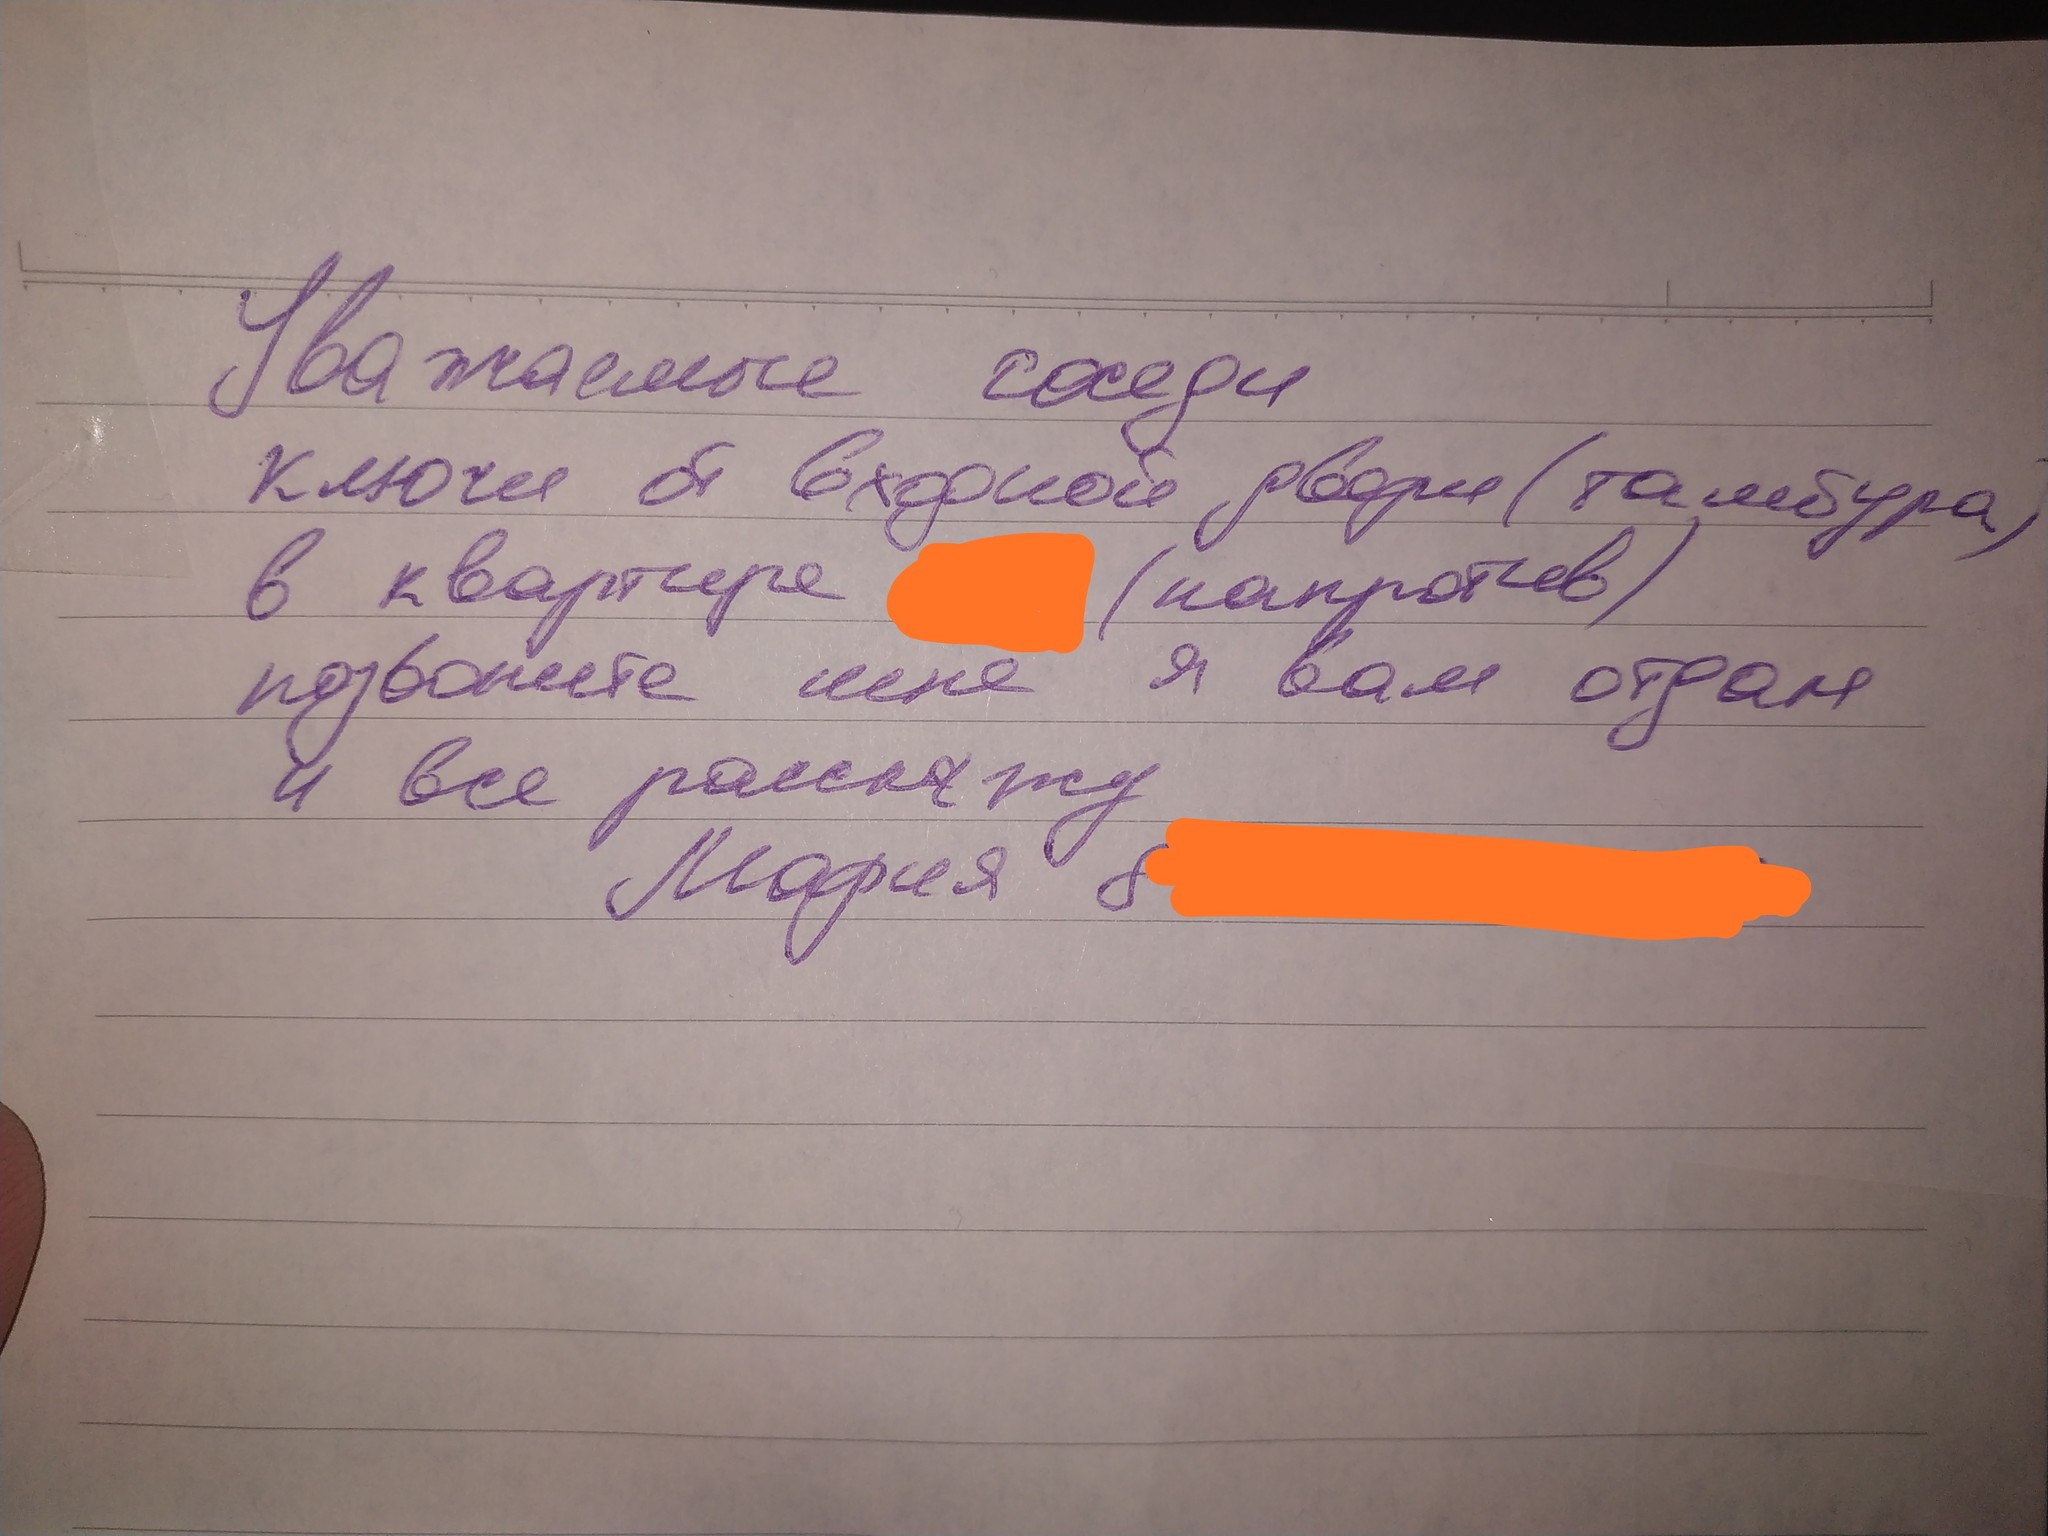 Уважаемые соседи
ключи от входной двери (тамбура)
в квартире (напротив)
позвоните мне я вам отдам
и все расскажу
Мария 8